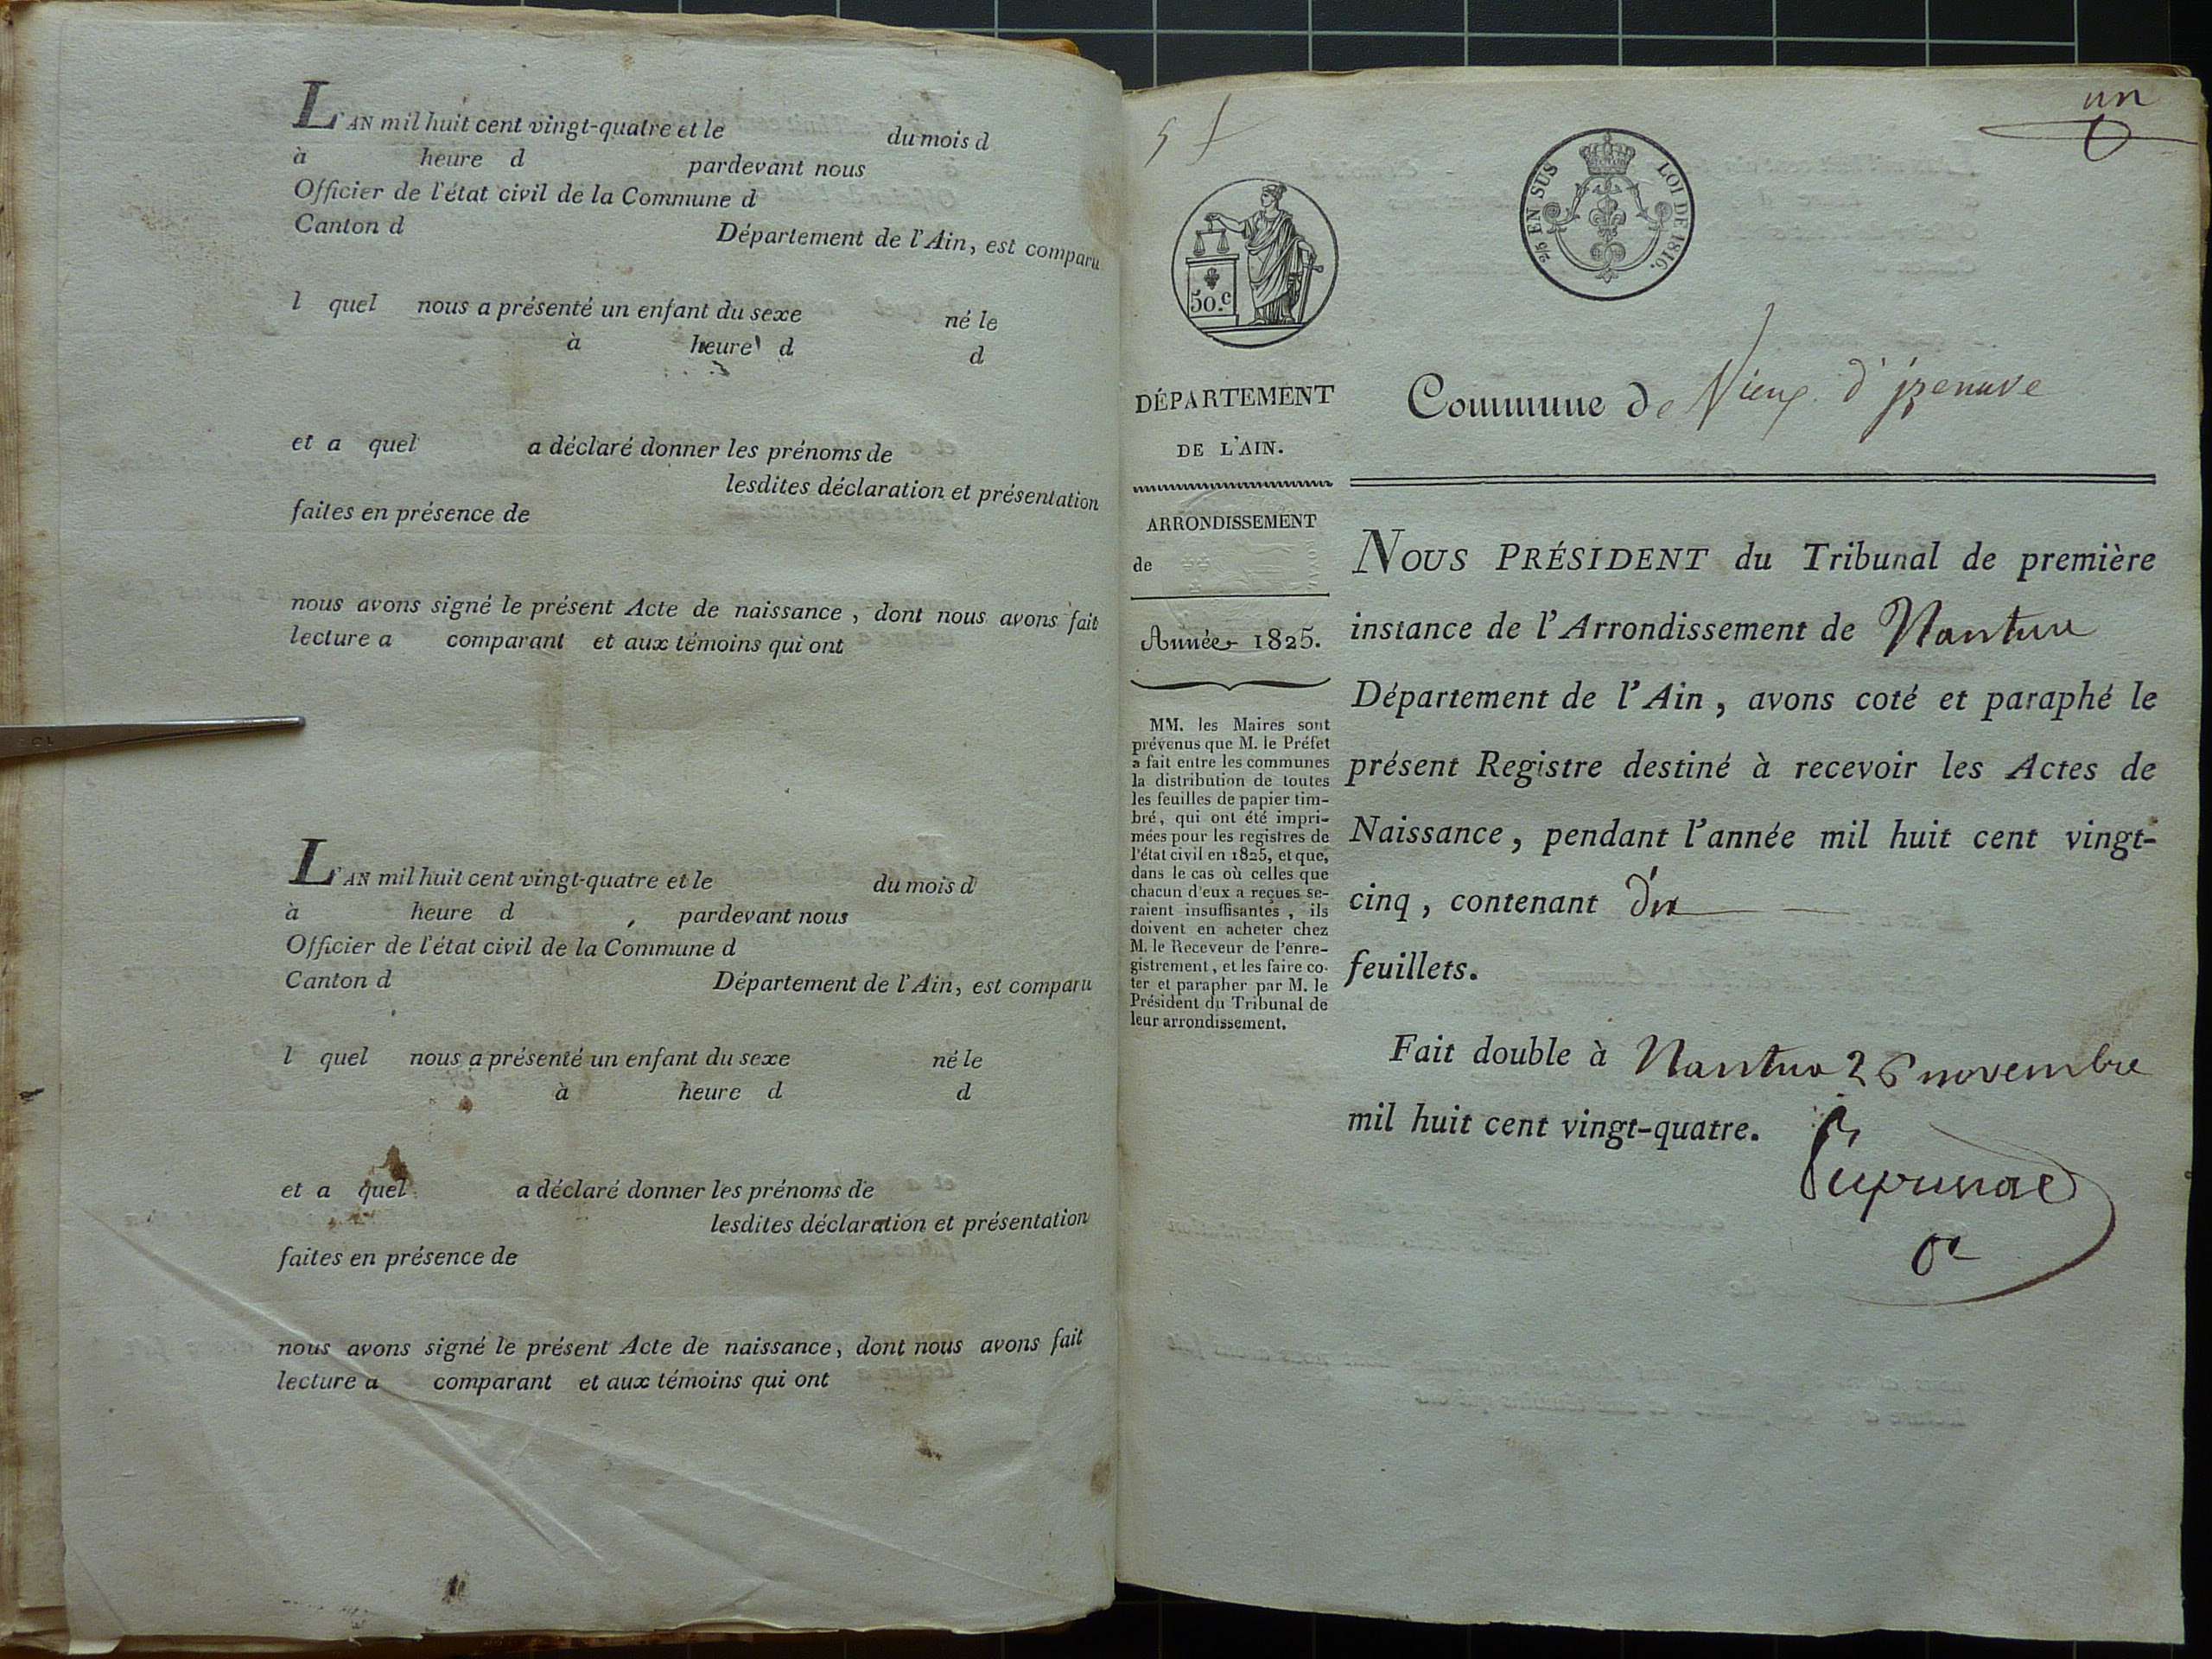 L'AN mil huit cent vingt-quatre et le du mois d
à heure d pardevant nous
Officier de l'état civil de la Commune d
Canton d Département de l'Ain, est comparu
l quel nous a présenté un enfant du sexe né le
à heure d d
et a quel a déclaré donner les prénoms de
lesdites déclaration et présentation
faites en présence de
nous avons signé le présent Acte de naissance, dont nous avons fait
lecture a comparant et aux témoins qui ont
L'AN mil huit cent vingt-quatre et le du mois d
à heure d , pardevant nous
Officier de l'état civil de la Commune d
Canton d Département de l'Ain, est comparu
l quel nous a présenté un enfant du sexe né le
à heure d d
et a quel a déclaré donner les prénoms de
lesdites déclaration et présentation
faites en présence de
nous avons signé le présent Acte de naissance, dont nous avons fait
lecture a comparant et aux témoins qui ont
un
2/5 EN SUS LOI DE 1816.
50.c
DÉPARTEMENT
DE L'AIN.
ARRONDISSEMENT
de
Année 1825.
MM. les Maires sont
prévenus que M. le Préfet
a fait entre les communes
la distribution de toutes
les feuilles de papier tim-
bré, qui ont été impri-
mées pour les registres de
l'état civil en 1825, et que,
dans le cas où celles que
chacun d'eux a reçues se-
raient insuffisantes, ils
doivent en acheter chez
M. le Receveur de l'enre-
gistrement, et les faire co-
ter et parapher par M. le
Président du Tribunal de
leur arrondissement.
Commune de Vieux d'izenave
NOUS PRÉSIDENT du Tribunal de première
instance de l'Arrondissement de Nantua
Département de l'Ain, avons coté et paraphé le
présent Registre destiné à recevoir les Actes de
Naissance, pendant l'année mil huit cent vingt-
cinq, contenant dix
feuillets.
Fait double à Nantua 26 novembre
mil huit cent vingt-quatre.